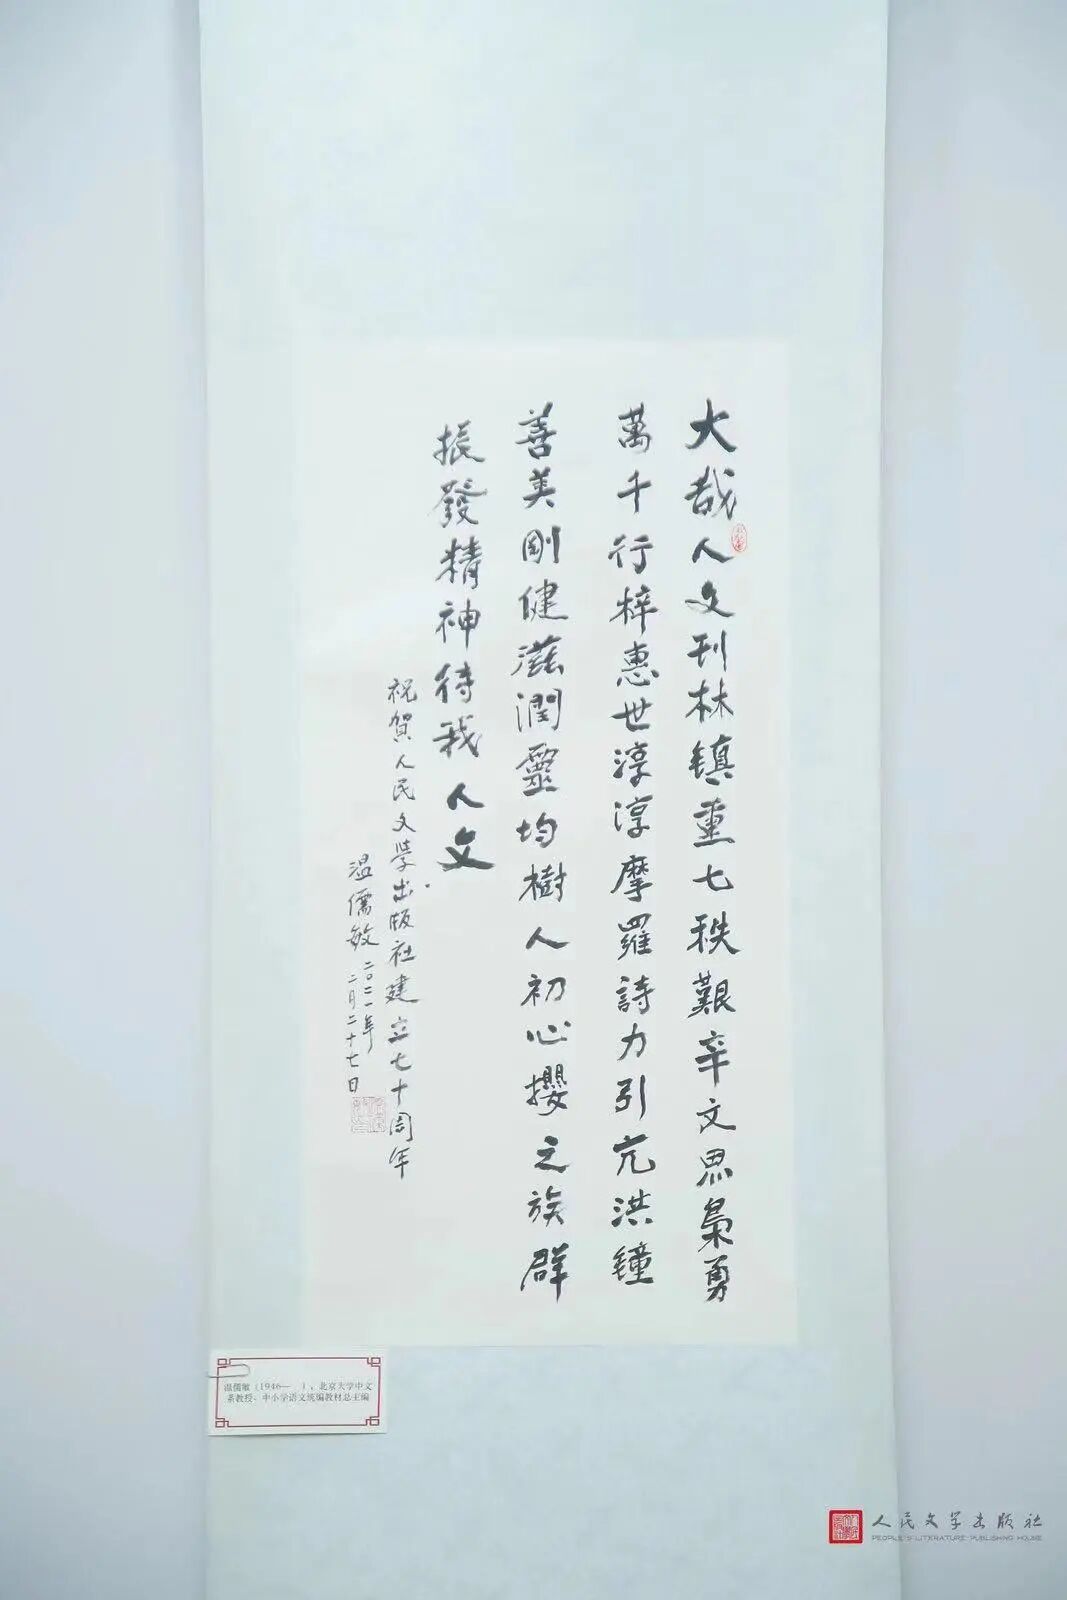 大哉人文刊林镇重七秩艱辛文思梟勇
萬千行梓惠世淳淳摩羅詩力引亢洪鐘
善美剛健滋潤靈均樹人初心攖之族群
振發精神待我人文
祝賀人民文學出版社建立七十周年
温儒敏二〇二一年
二月二十七日
温儒敏（1946— ），北京大学中文
系教授、中小学语文统编教材总主编
人民文学出版社
PEOPLE'S LITERATURE PUBLISHING HOUSE